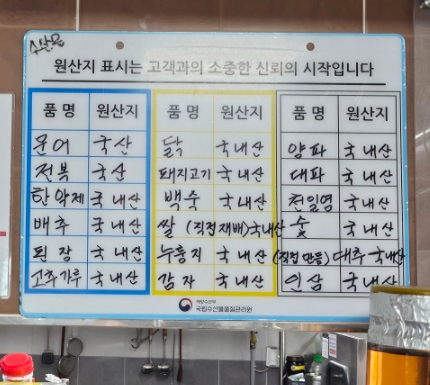 수산물
원산지 표시는 고객과의 소중한 신뢰의 시작입니다
품 명 원산지 품 명 원산지 품 명 원산지
문어 국산 닭 국내산 양파 국내산
전복 국산 돼지고기 국내산 대파 국내산
한약제 국내산 백숙 국내산 천일염 국내산
배추 국내산 쌀 (직접재배) 국내산 숯 국내산
된장 국내산 누룽지 국내산 (직접만듬) 대추 국내산
고추가루 국내산 감자 국내산 인삼 국내산
해양수산부
국립수산물품질관리원